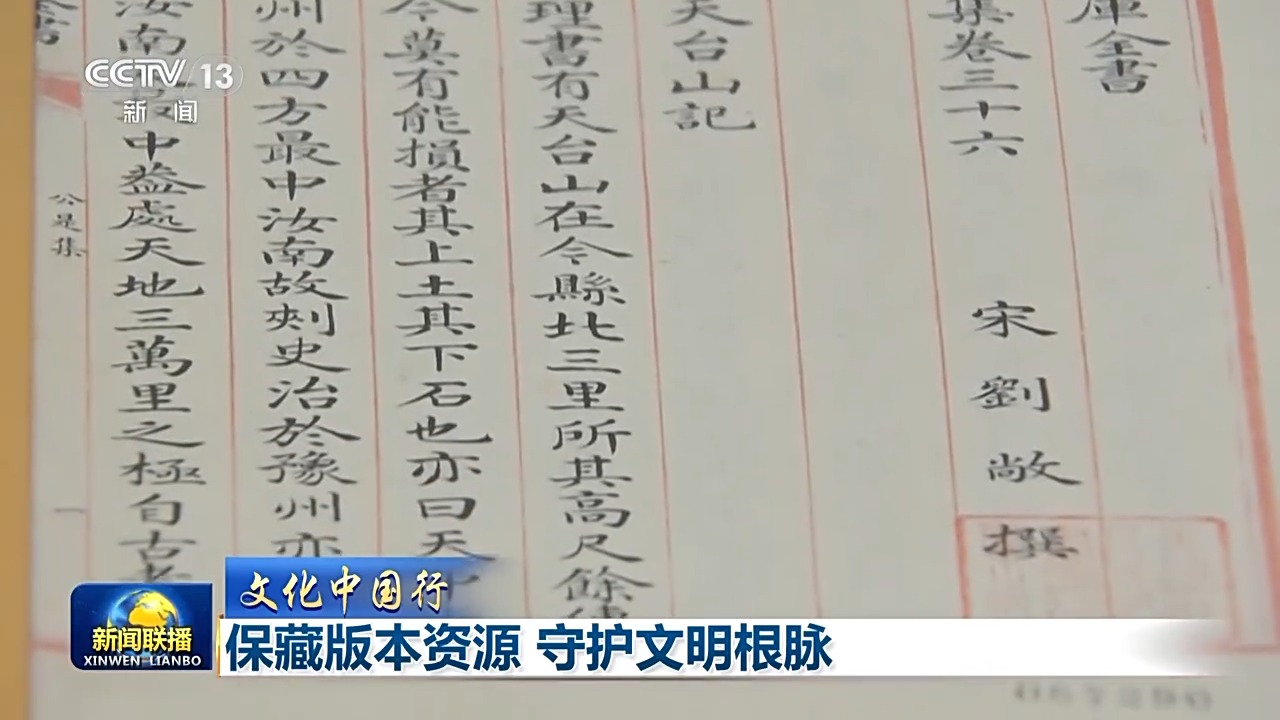 庫全書
集卷三十六 宋劉敞撰
天台山記
理書有天台山在今縣北三里所其高尺餘
今莫有能損者其上土其下石也亦曰天中
州於四方最中汝南故刾史治於豫州亦
汝南
中葢處天地三萬里之極自古
公是集
一
CCTV 13
新闻
文化中国行
新闻联播
XINWEN LIANBO
保藏版本资源 守护文明根脉